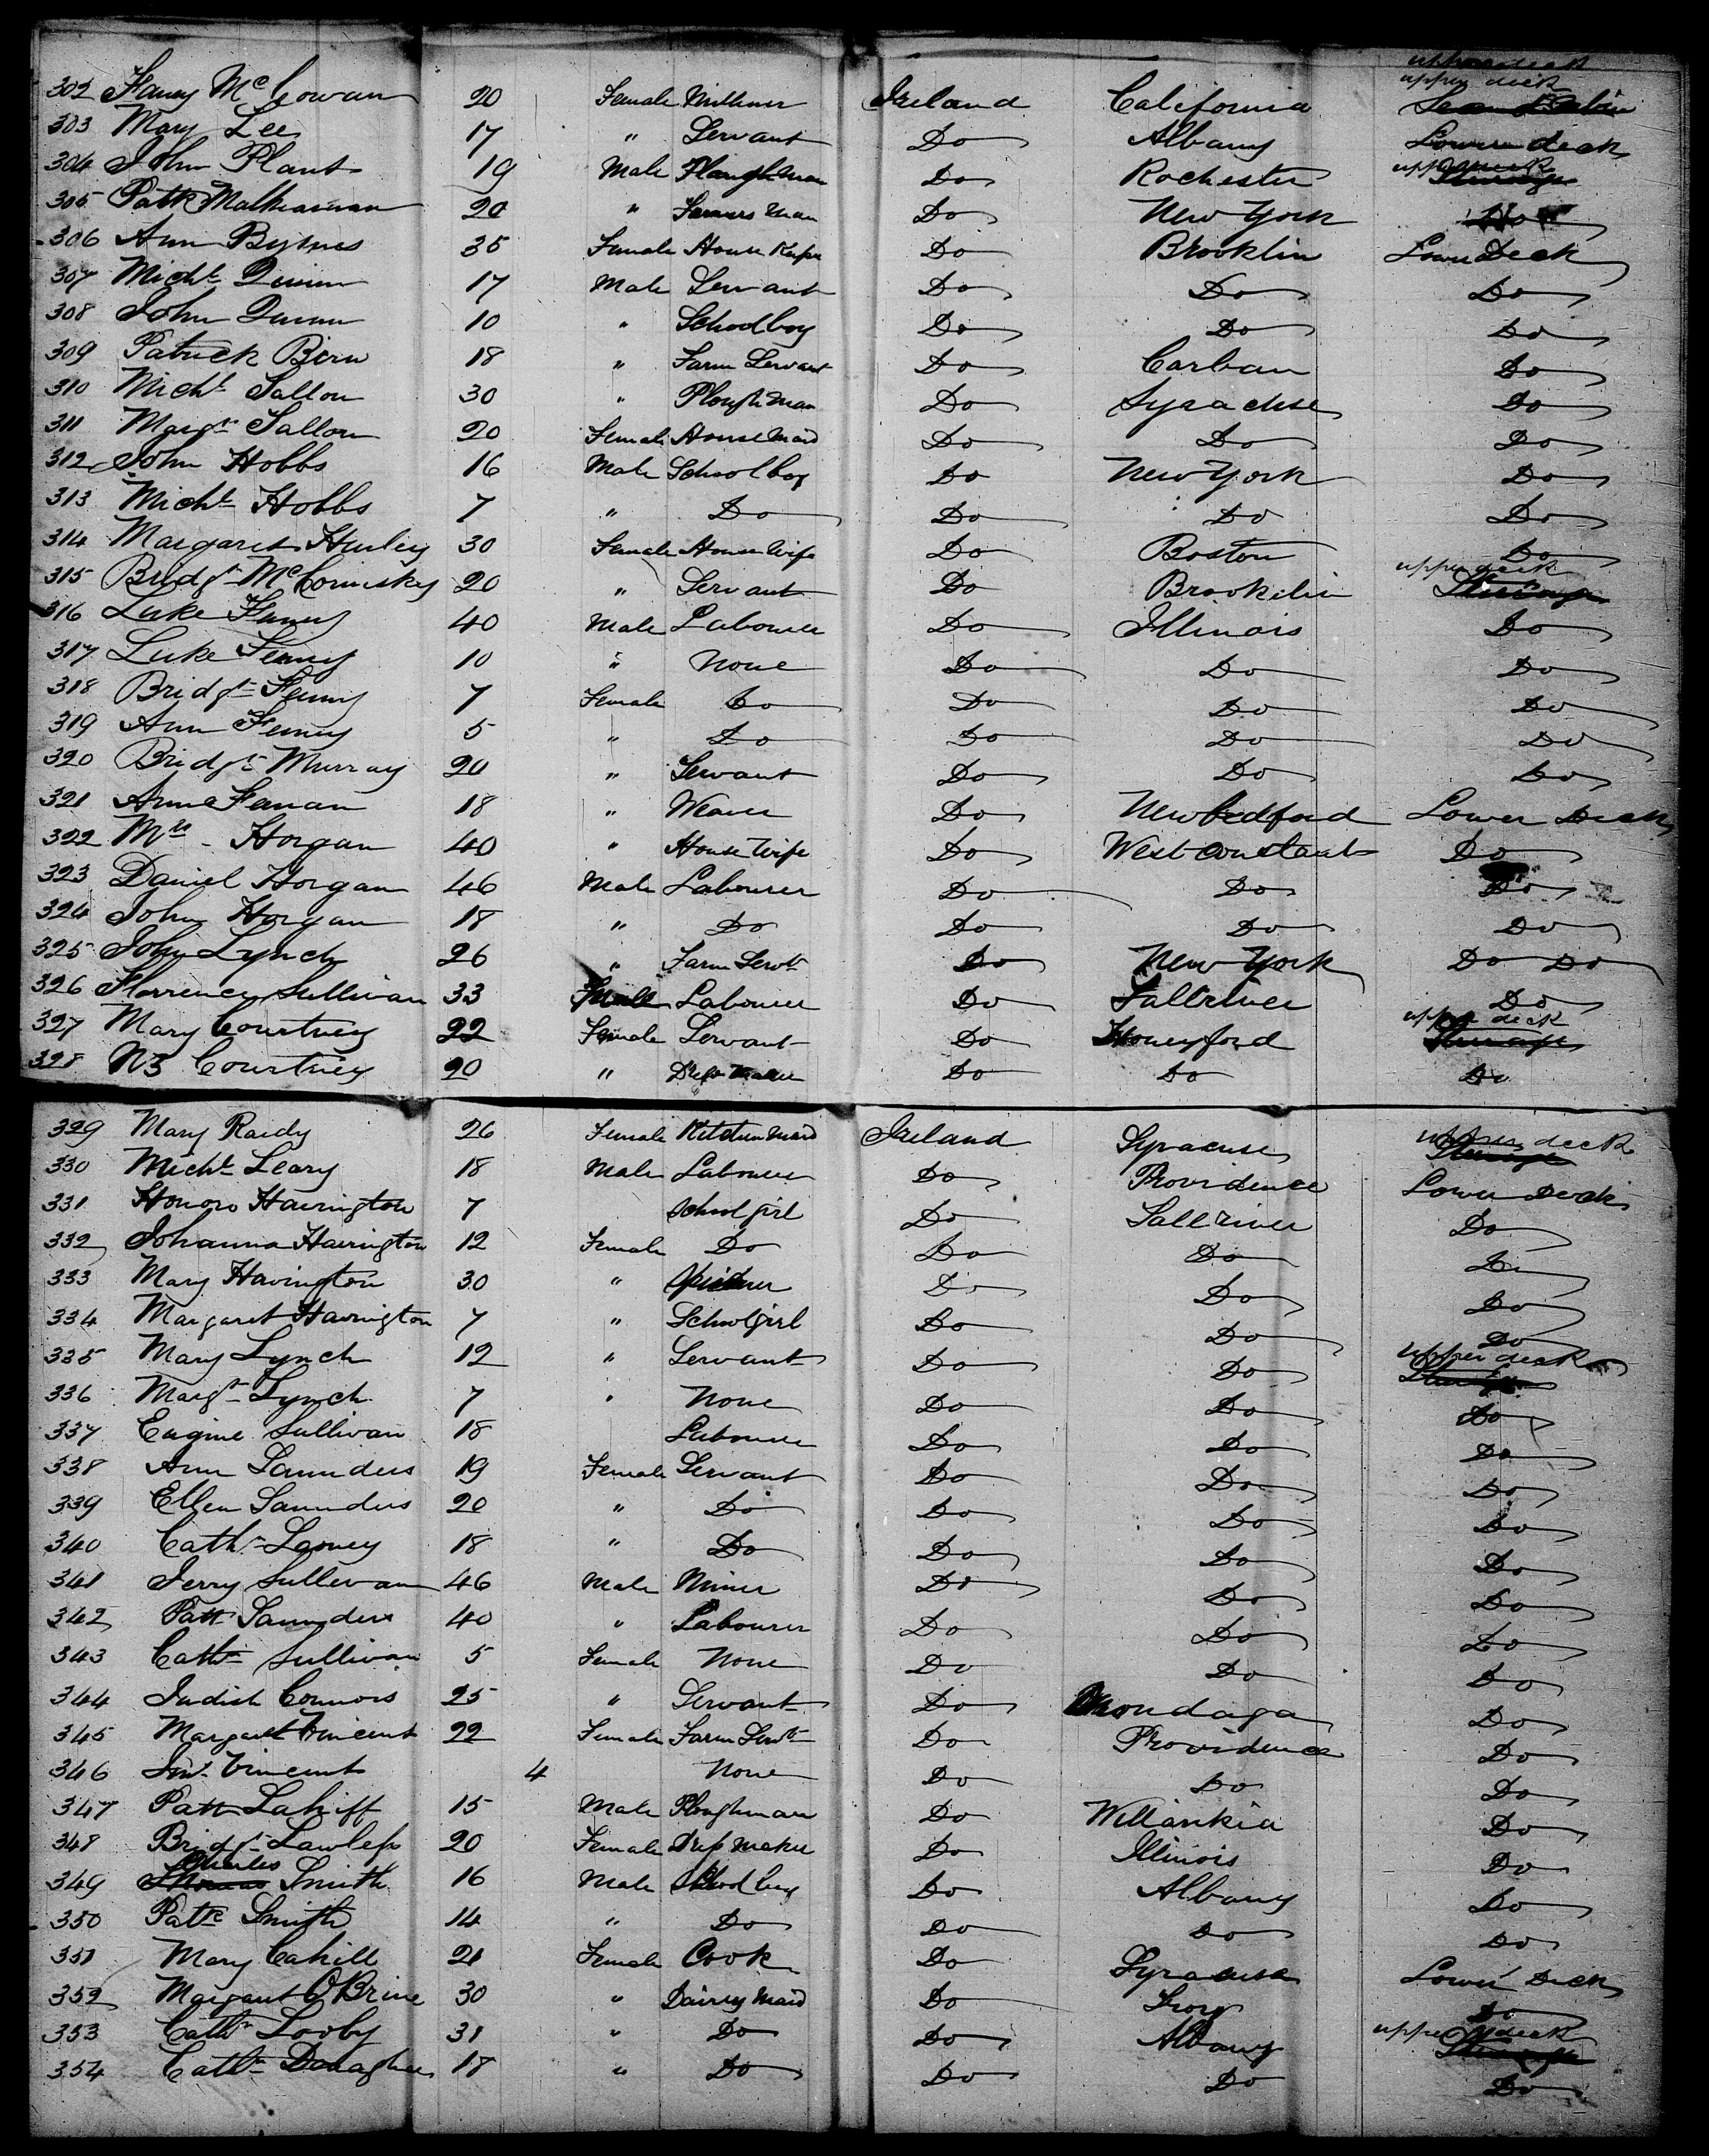 upper deck
302 Fanny McCowan 20 Female Milliner Ireland California upper deck
303 Mary Lee 17 " Servant Do Albany Lower deck
304 John Plant 19 Male Ploughman Do Rochester upper deck Steerage
305 Patk 20 " Farmers Man Do New York Do
306 Ann Byrnes 35 Female House Keeper Do Brooklin Lower Deck
307 Michl Quinn 17 Male Servant Do Do Do
308 John Quinn 10 " Schoolboy Do Do Do
309 Patrick Birn 18 " Farm Servant Do Carban Do
310 Michl Fallon 30 " Plough Man Do Syrachse Do
311 Margt Fallon 20 Female House Maid Do Do Do
312 John Hobbs 16 Male School boy Do New York Do
313 Michl Hobbs 7 " Do Do Do Do
314 Margaret Hurley 30 Female House Wife Do Boston Do
315 Bridgt McCormskey 20 " Servant Do Brookelin upper deck Steerage
316 Luke Feeney 40 Male Labourer Do Illinois Do
317 Luke Feeney 10 " None Do Do Do
318 Bridgt Feeney 7 Female Do Do Do Do
319 Ann Feeney 5 " Do Do Do Do
320 Bridgt Murray 20 " Servant Do Do Do
321 Anne Fanan 18 " Weaver Do New bedford Lower Deck
322 Mrs Horgan 40 " House Wife Do West Constant Do
323 Daniel Horgan 46 Male Labourer Do Do Do
324 John Horgan 18 " Do Do Do Do
325 John Lynch 26 " Farm Servt Do New York Do Do
326 Florrency Sullivan 33 Male Labourer Do Fallriver Do
327 Mary Courtney 22 Female Servant Do Honeyford upper deck Steerage
328 Courtney 20 " Dress Maker Do Do Do
329 Mary Raidy 26 Female Kitchen Maid Ireland Syracuse upper deck Steerage
330 Michl Leary 18 Male Labourer Do Providence Lower Deck
331 Honoro Harrington 7 School girl Do Fallriver Do
332 Johanna Harrington 12 Female Do Do Do Do
333 Mary Harrington 30 " Do Do Do
334 Margaret Harrington 7 " Schoolgirl Do Do Do
335 Mary Lynch 12 " Servant Do Do upper deck Steerage
336 Margt Lynch 7 " None Do Do Do
337 Eugine Sullivan 18 Labourer Do Do Do
338 Ann Saunders 19 Female Servant Do Do Do
339 Ellen Saunders 20 " Do Do Do Do
340 Cathn Looney 18 " Do Do Do Do
341 Jerry Sullivan 46 Male Miner Do Do Do
342 Patt Saunders 40 " Labourer Do Do Do
343 Cathn Sullivan 5 Female None Do Do Do
344 Judith Connors 25 " Servant Do Onondaga Do
345 Margaret Vincent 22 Female Farm Servt Do Providence Do
346 Vincent 4 None Do Do Do
347 Patt Lahiff 15 Male Ploughman Do Willankia Do
348 Bridgt Lawless 20 Female Dress Maker Do Illinois Do
349 Charles Thomas Smith 16 Male School boy Do Albany Do
350 Patk Smith 14 " Do Do Do Do
351 Mary Cahill 21 Female Cook Do Syracuse Lower Deck
352 Margaret O'Brine 30 " Dairey Maid Do Troy Do
353 Cathn Looby 31 " Do Do Albany upper deck Steerage
354 Cathn Donaghue 18 " Do Do Do Do